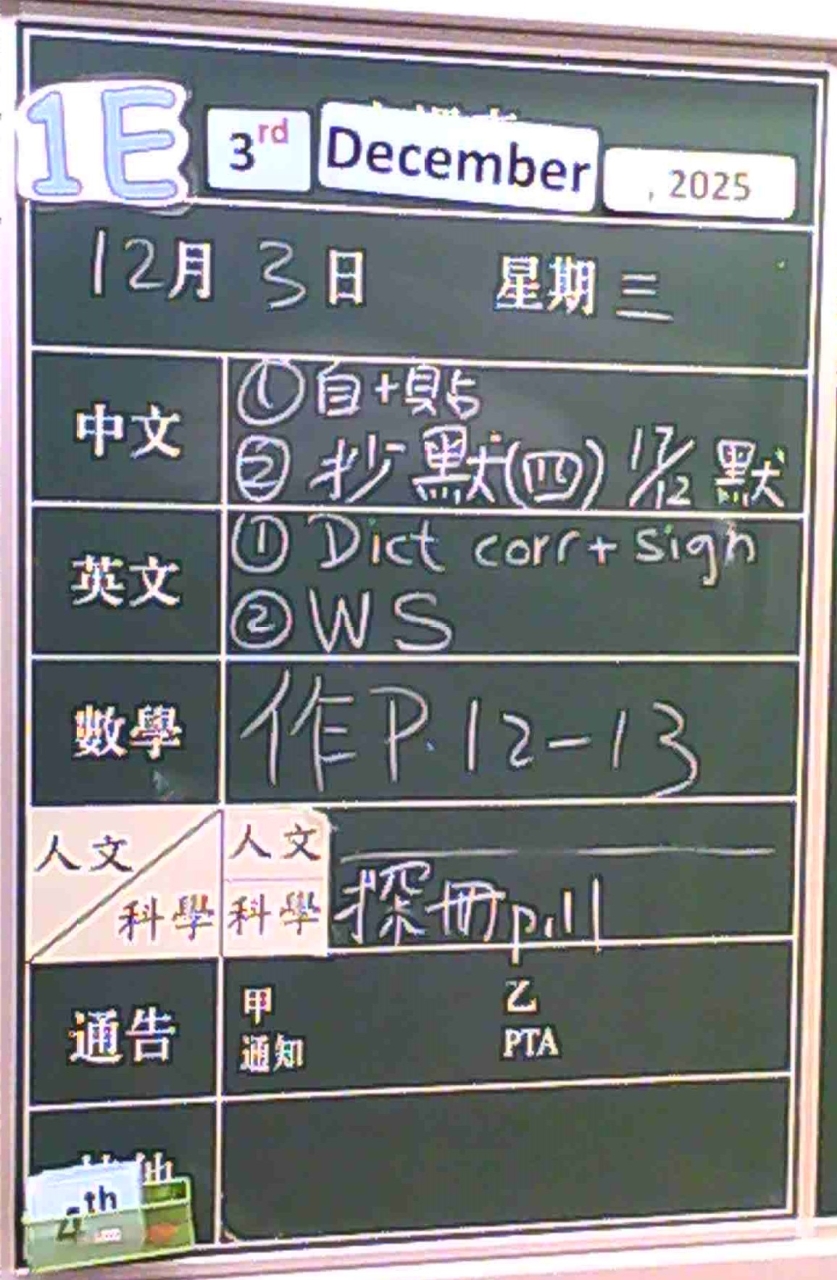 1E 3rd December , 2025
12月 3日 星期三
中文
①自+貼
② 抄默(四) 17/12 默
英文
① Dict corr + sign
② WS
數學
作P.12-13
人文
科學
人文
科學 探冊p.11
通告
甲 乙
通知 PTA
4th